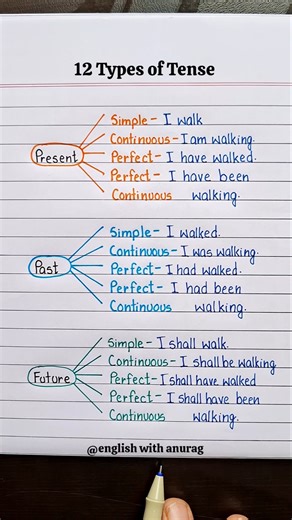 12 Types of Tense
Simple - I walk
Continuous - I am walking.
Present
Perfect - I have walked.
Perfect - I have been
Continuous walking.
Simple - I walked.
Continuous - I was walking.
Past
Perfect - I had walked.
Perfect - I had been
Continuous walking.
Simple - I shall walk.
Continuous - I shall be walking
Future
Perfect - I shall have walked
Perfect - I shall have been
Continuous walking.
@english with anurag